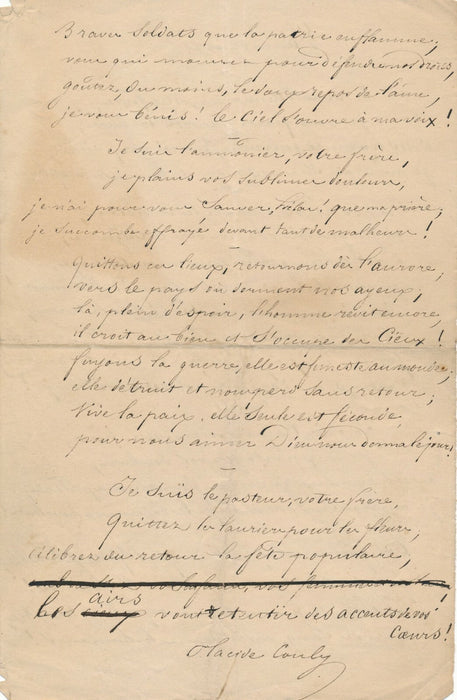 Braves Soldats que la patrie enflamme,
vous qui mourez pour défendre nos droits,
goûtez, du moins, le doux repos de l'âme,
je vous bénis! le Ciel s'ouvre à ma voix!
Je suis l'aumônier, votre frère,
je plains vos sublimes douleurs,
je n'ai pour vous sauver, hélas! que ma prière,
je succombe effrayé devant tant de malheurs!
Quittons ces lieux, retournons dès l'aurore,
vers le pays où dorment nos ayeux,
là, plein d'espoir, l'homme revit encore,
il croit au bien et s'occupe des Cieux!
fuyons la guerre, elle est funeste au monde,
elle détruit et nous perd sans retour;
Vive la paix, elle seule est féconde,
pour nous aimer Dieu nous donna le jour!
Je suis le pasteur, votre frère,
Quittez le laurier pour les fleurs,
Célébrez du retour la fête populaire,
les airs vont retentir des accents de vos
Cœurs!
Placide Couly